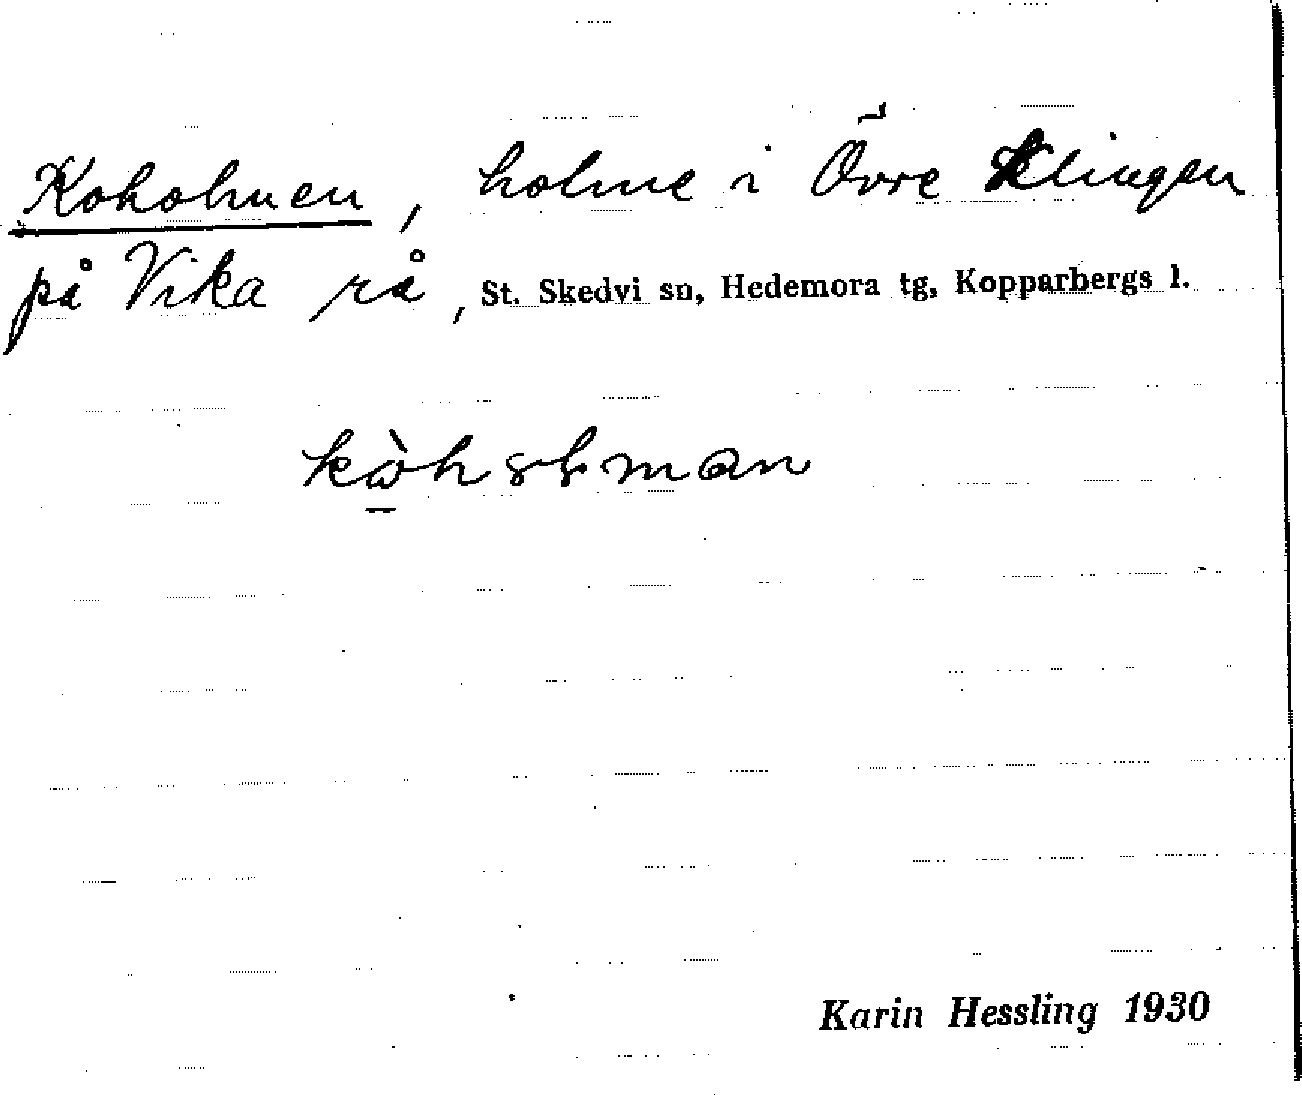 Koholmen, holme i Övre Klingen
på Vika rå, St. Skedvi sn, Hedemora tg, Kopparbergs l.
Karin Hessling 1930